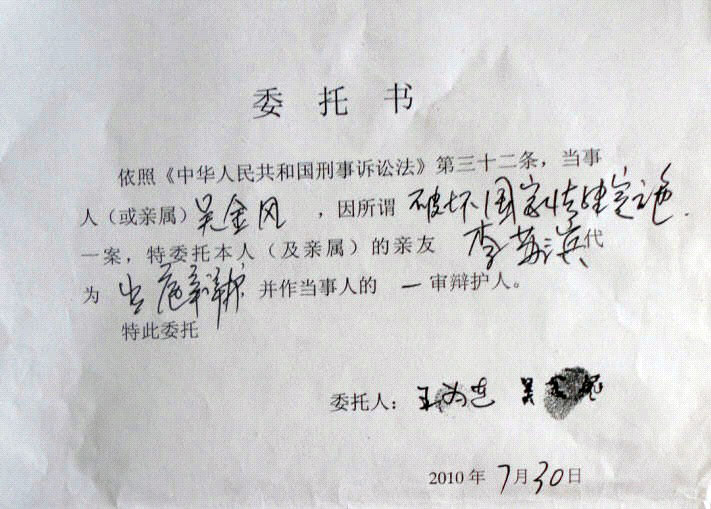 委托书
依照《中华人民共和国刑事诉讼法》第三十二条，当事
人（或亲属）吴金风，因所谓破坏国家法律实施
一案，特委托本人（及亲属）的亲友李苏滨代
为当庭辩护并作当事人的一审辩护人。
特此委托
委托人：王 吴
2010年7月30日